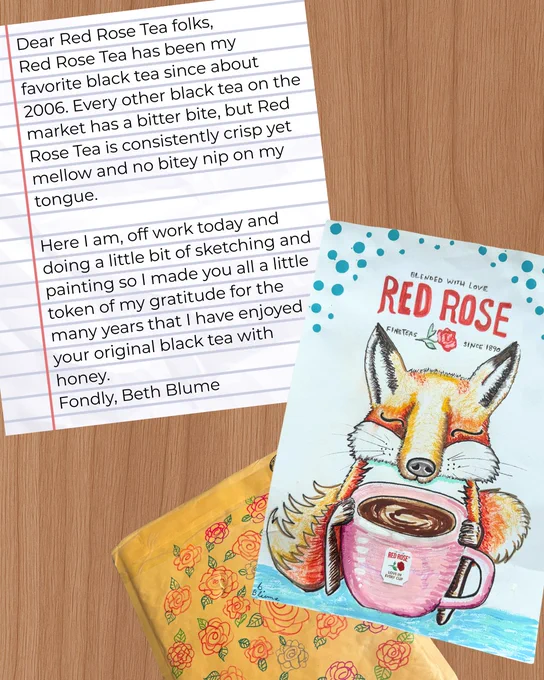 Dear Red Rose Tea folks,
Red Rose Tea has been my
favorite black tea since about
2006. Every other black tea on the
market has a bitter bite, but Red
Rose Tea is consistently crisp yet
mellow and no bitey nip on my
tongue.
Here I am, off work today and
doing a little bit of sketching and
painting so I made you all a little
token of my gratitude for the
many years that I have enjoyed
your original black tea with
honey.
Fondly, Beth Blume
BLENDED WITH LOVE
RED ROSE
FINE TEAS
SINCE 1890
RED ROSE
LOVE IN
EVERY CUP
B Blume